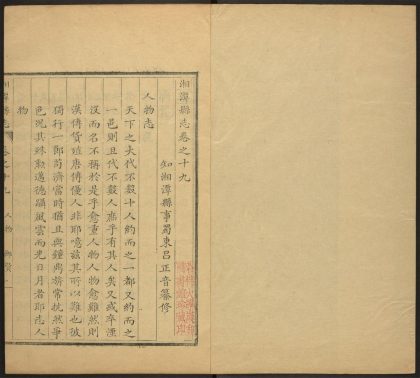 湘潭縣志卷之十九
知湘潭縣事蜀東呂正音纂修
人物志
天下之大代不數十人約而之一都又約而之
一邑則且代不數人焉乎有其人矣又或卒湮
沒而名不稱於是乎愈重人物人物愈難然則
漢傳貨殖唐傳優人非耶噫兹其所以難也彼
獨行一鄉苟濟當時猶且與鐘鼎旂常抗然爭
色況其殊勳邁德躡風雲而光日月者耶志人
物
湘潭縣志 卷之十九 人物 鄉賢 一